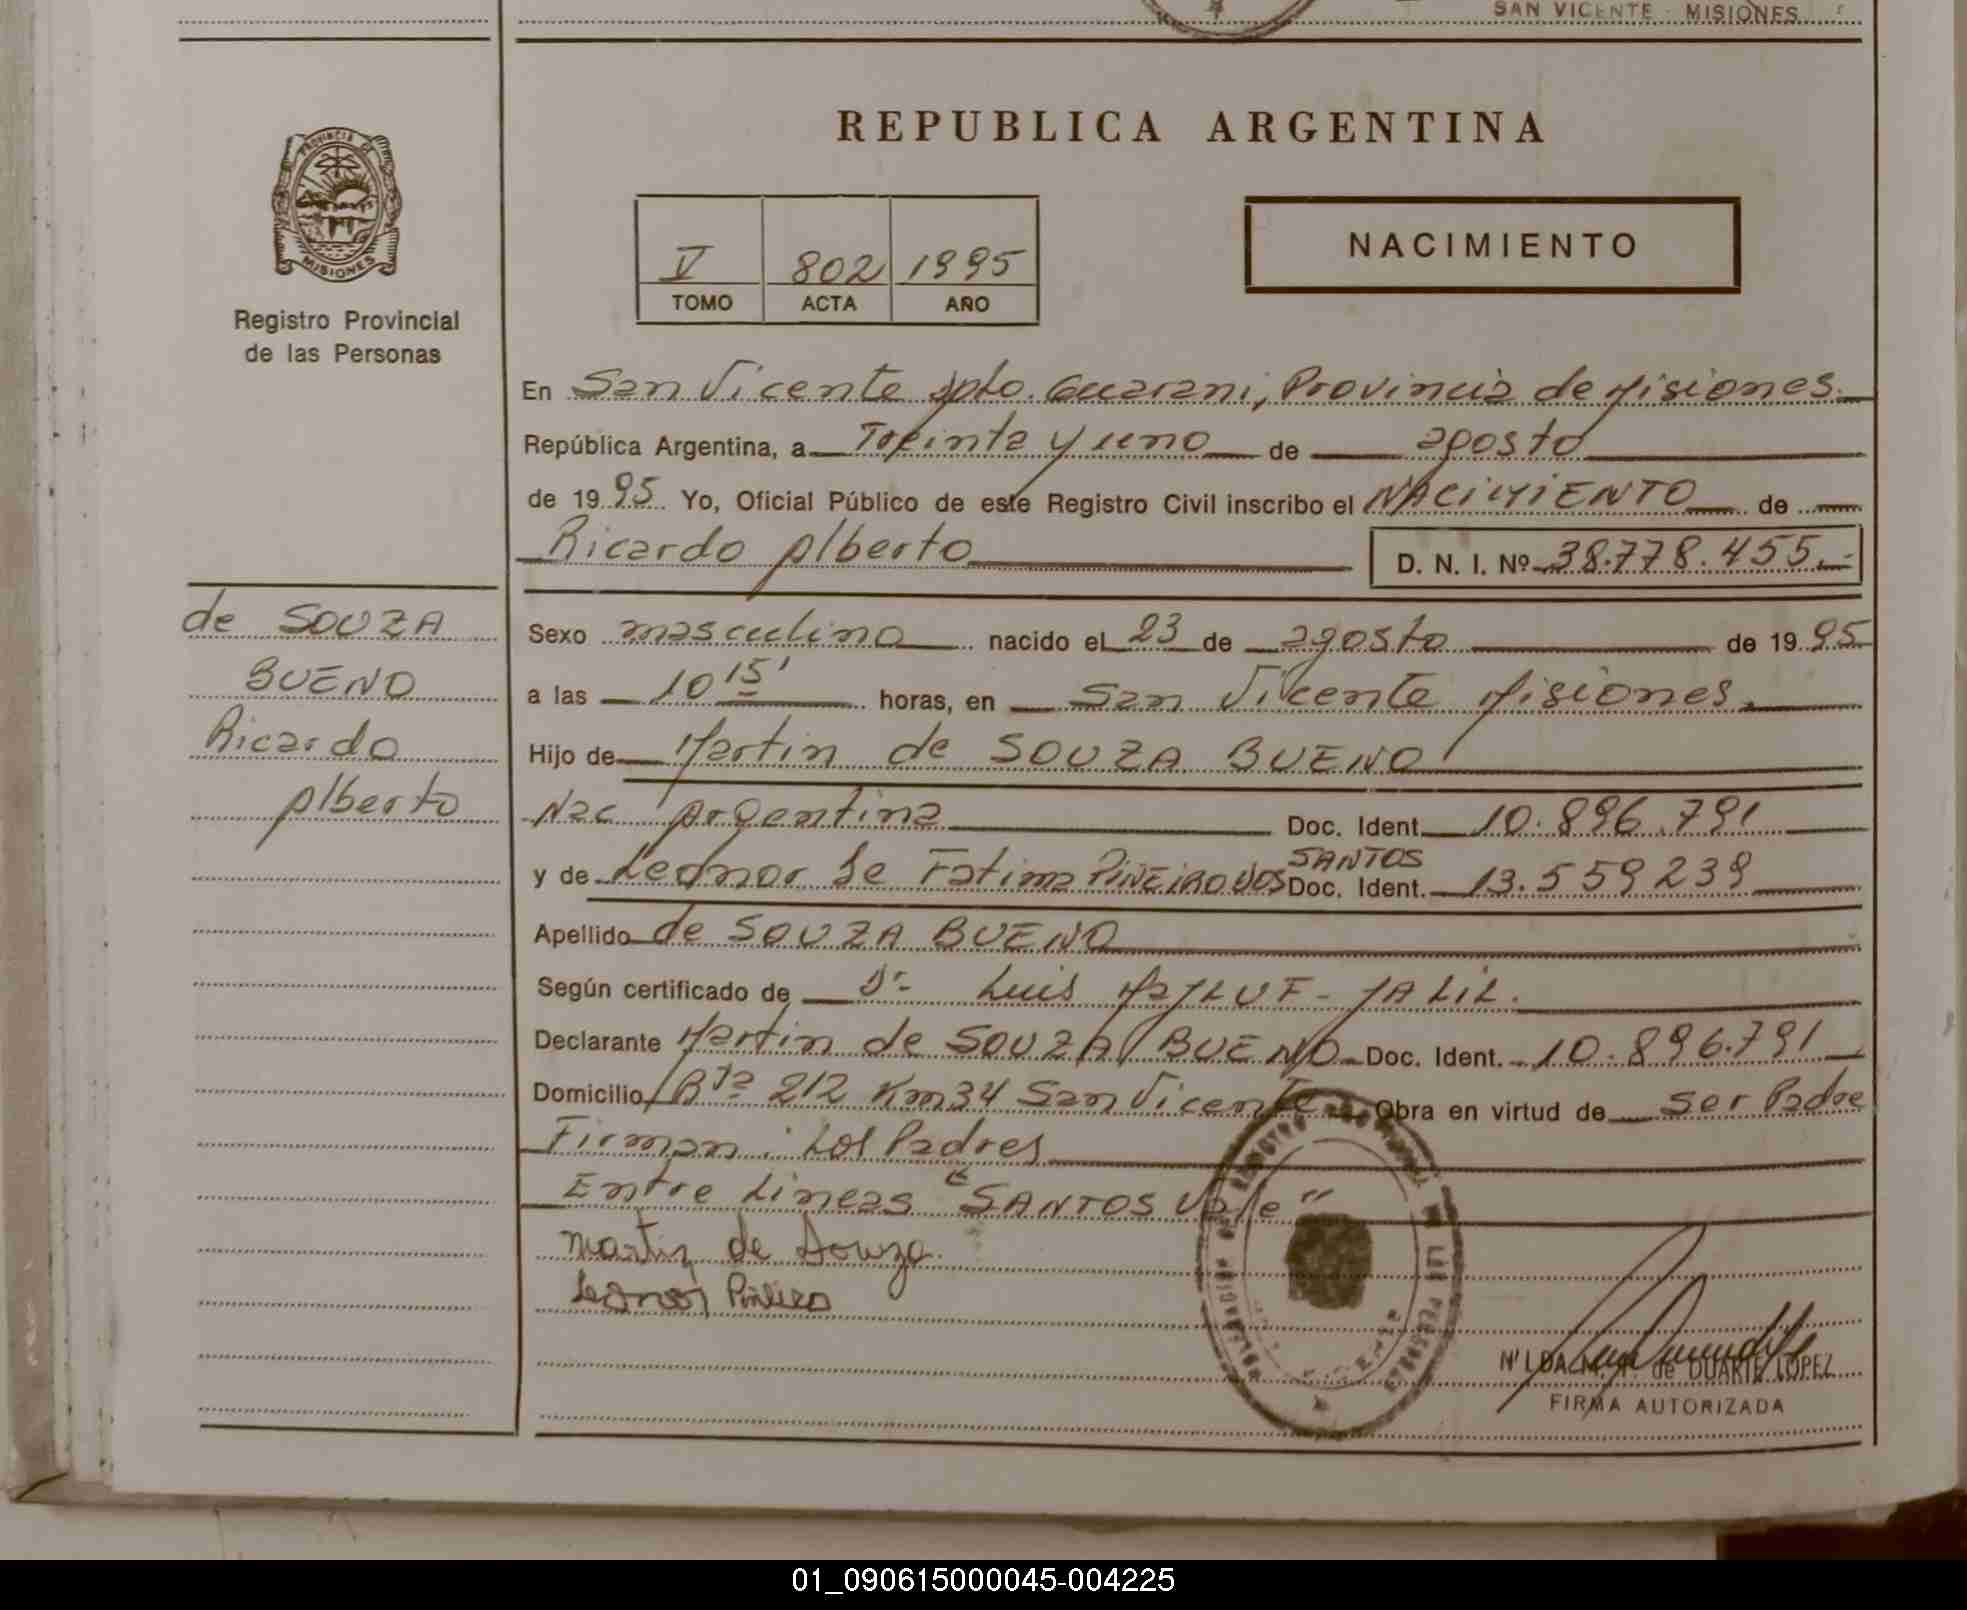 SAN VICENTE - MISIONES
REPUBLICA ARGENTINA
PROVINCIA DE
MISIONES
Registro Provincial
de las Personas
V 802 1995
TOMO ACTA AÑO
NACIMIENTO
En San Vicente Dpto. Guarani, Provincia de Misiones.
República Argentina, a Treinta y uno de agosto
de 1995 Yo, Oficial Público de este Registro Civil inscribo el NACIMIENTO de
Ricardo Alberto D. N. I. Nº 38.778.455.-
de SOUZA
BUENO
Ricardo
Alberto
Sexo masculino nacido el 23 de agosto de 1995
a las 10 15' horas, en San Vicente Misiones.
Hijo de Martin de SOUZA BUENO
Nac Argentina Doc. Ident. 10.896.791
SANTOS
y de Leonor de Fatima PIÑEIRO DOS Doc. Ident. 13.559239
Apellido de SOUZA BUENO
Según certificado de Dr Luis JALIL.
Declarante Martin de SOUZA BUENO Doc. Ident. 10.896.791
Domicilio Rta 212 Km34 San Vicente Obra en virtud de ser Padre
Firman: Los Padres
Entre Lineas "SANTOS Vale"
Martin de Souza.
Leonor Piñeiro
de DUARTE LOPEZ
FIRMA AUTORIZADA
01_090615000045-004225